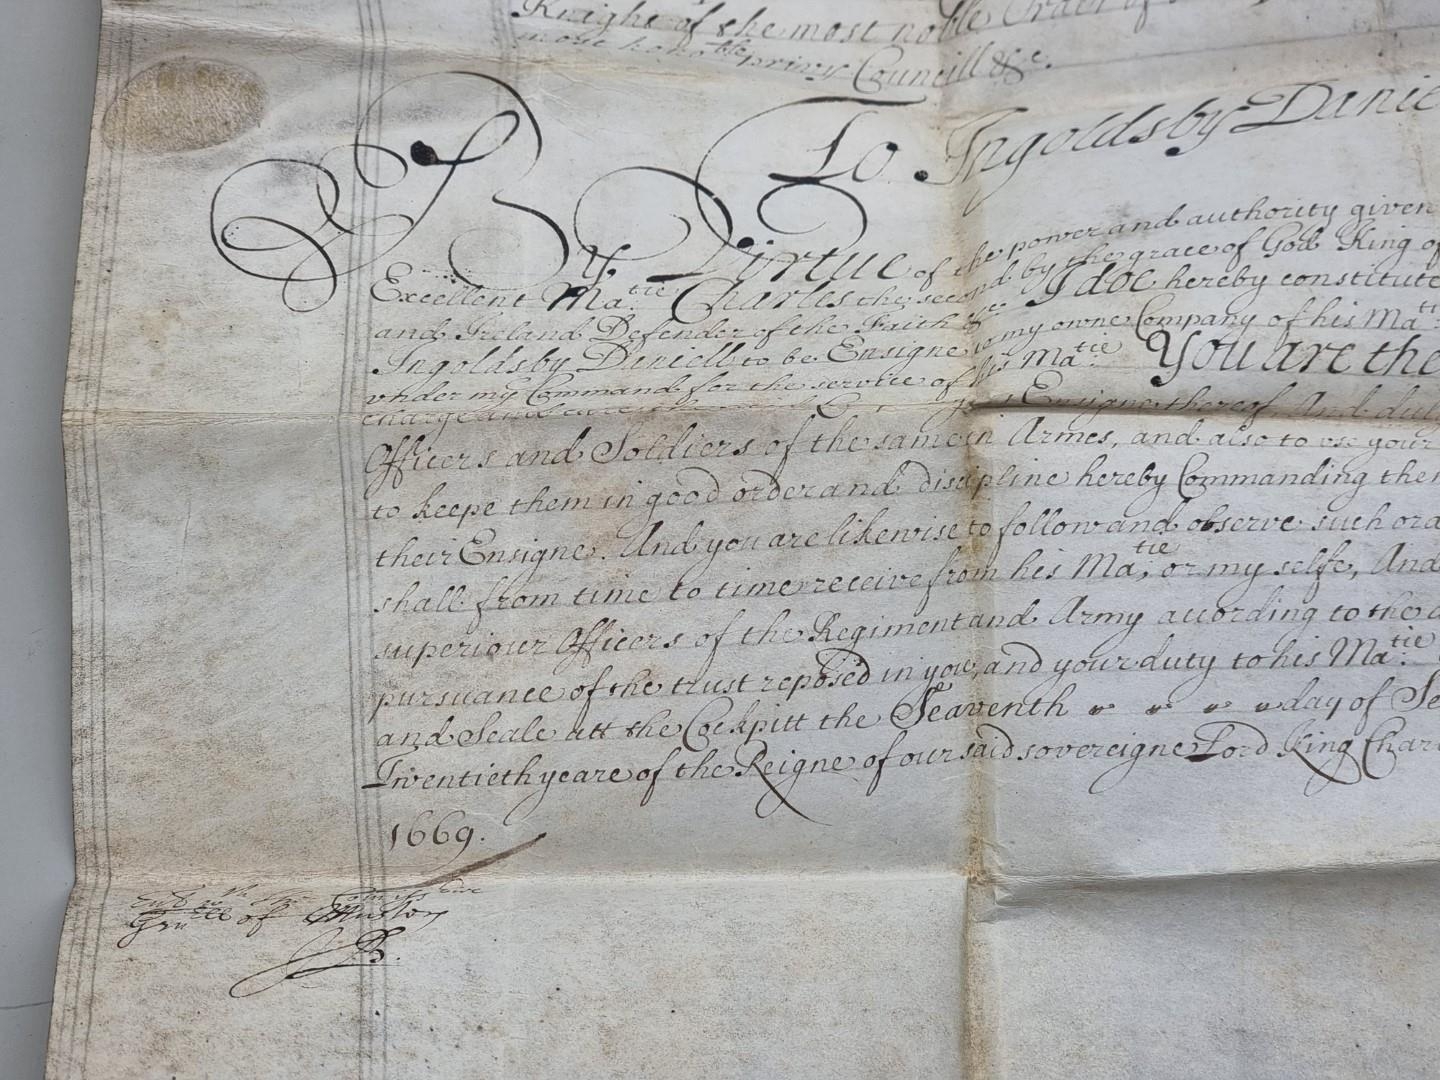 Knight of the most noble Order of
most hono:ble privy Councill &c.
To Ingoldsby Danie
By Virtue of the power and authority given
Excellent Ma:tie Charles the second by the grace of God King of
and Ireland Defender of the Faith &c I doe hereby constitute
Ingoldsby Daniell to be Ensigne to my owne Company of his Ma:ti
vnder my Command for the service of his Ma:tie You are the
charge and care Ensigne thereof, And duly
Officers and Soldiers of the same in Armes, and also to vse your
to keepe them in good order and discipline hereby Commanding them
their Ensigne. And you are likewise to follow and observe such ord
shall from time to time receive from his Ma:tie, or my selfe, And
superiour Officers of the Regiment and Army according to the
pursuance of the trust reposed in you, and your duty to his Ma:tie
and Seale att the Cockpitt the Seaventh day of Se
Twentieth yeare of the Reigne of our said sovereigne Lord King Char
1669.
Entd wth ye Comissary
Gen:ell of Musters